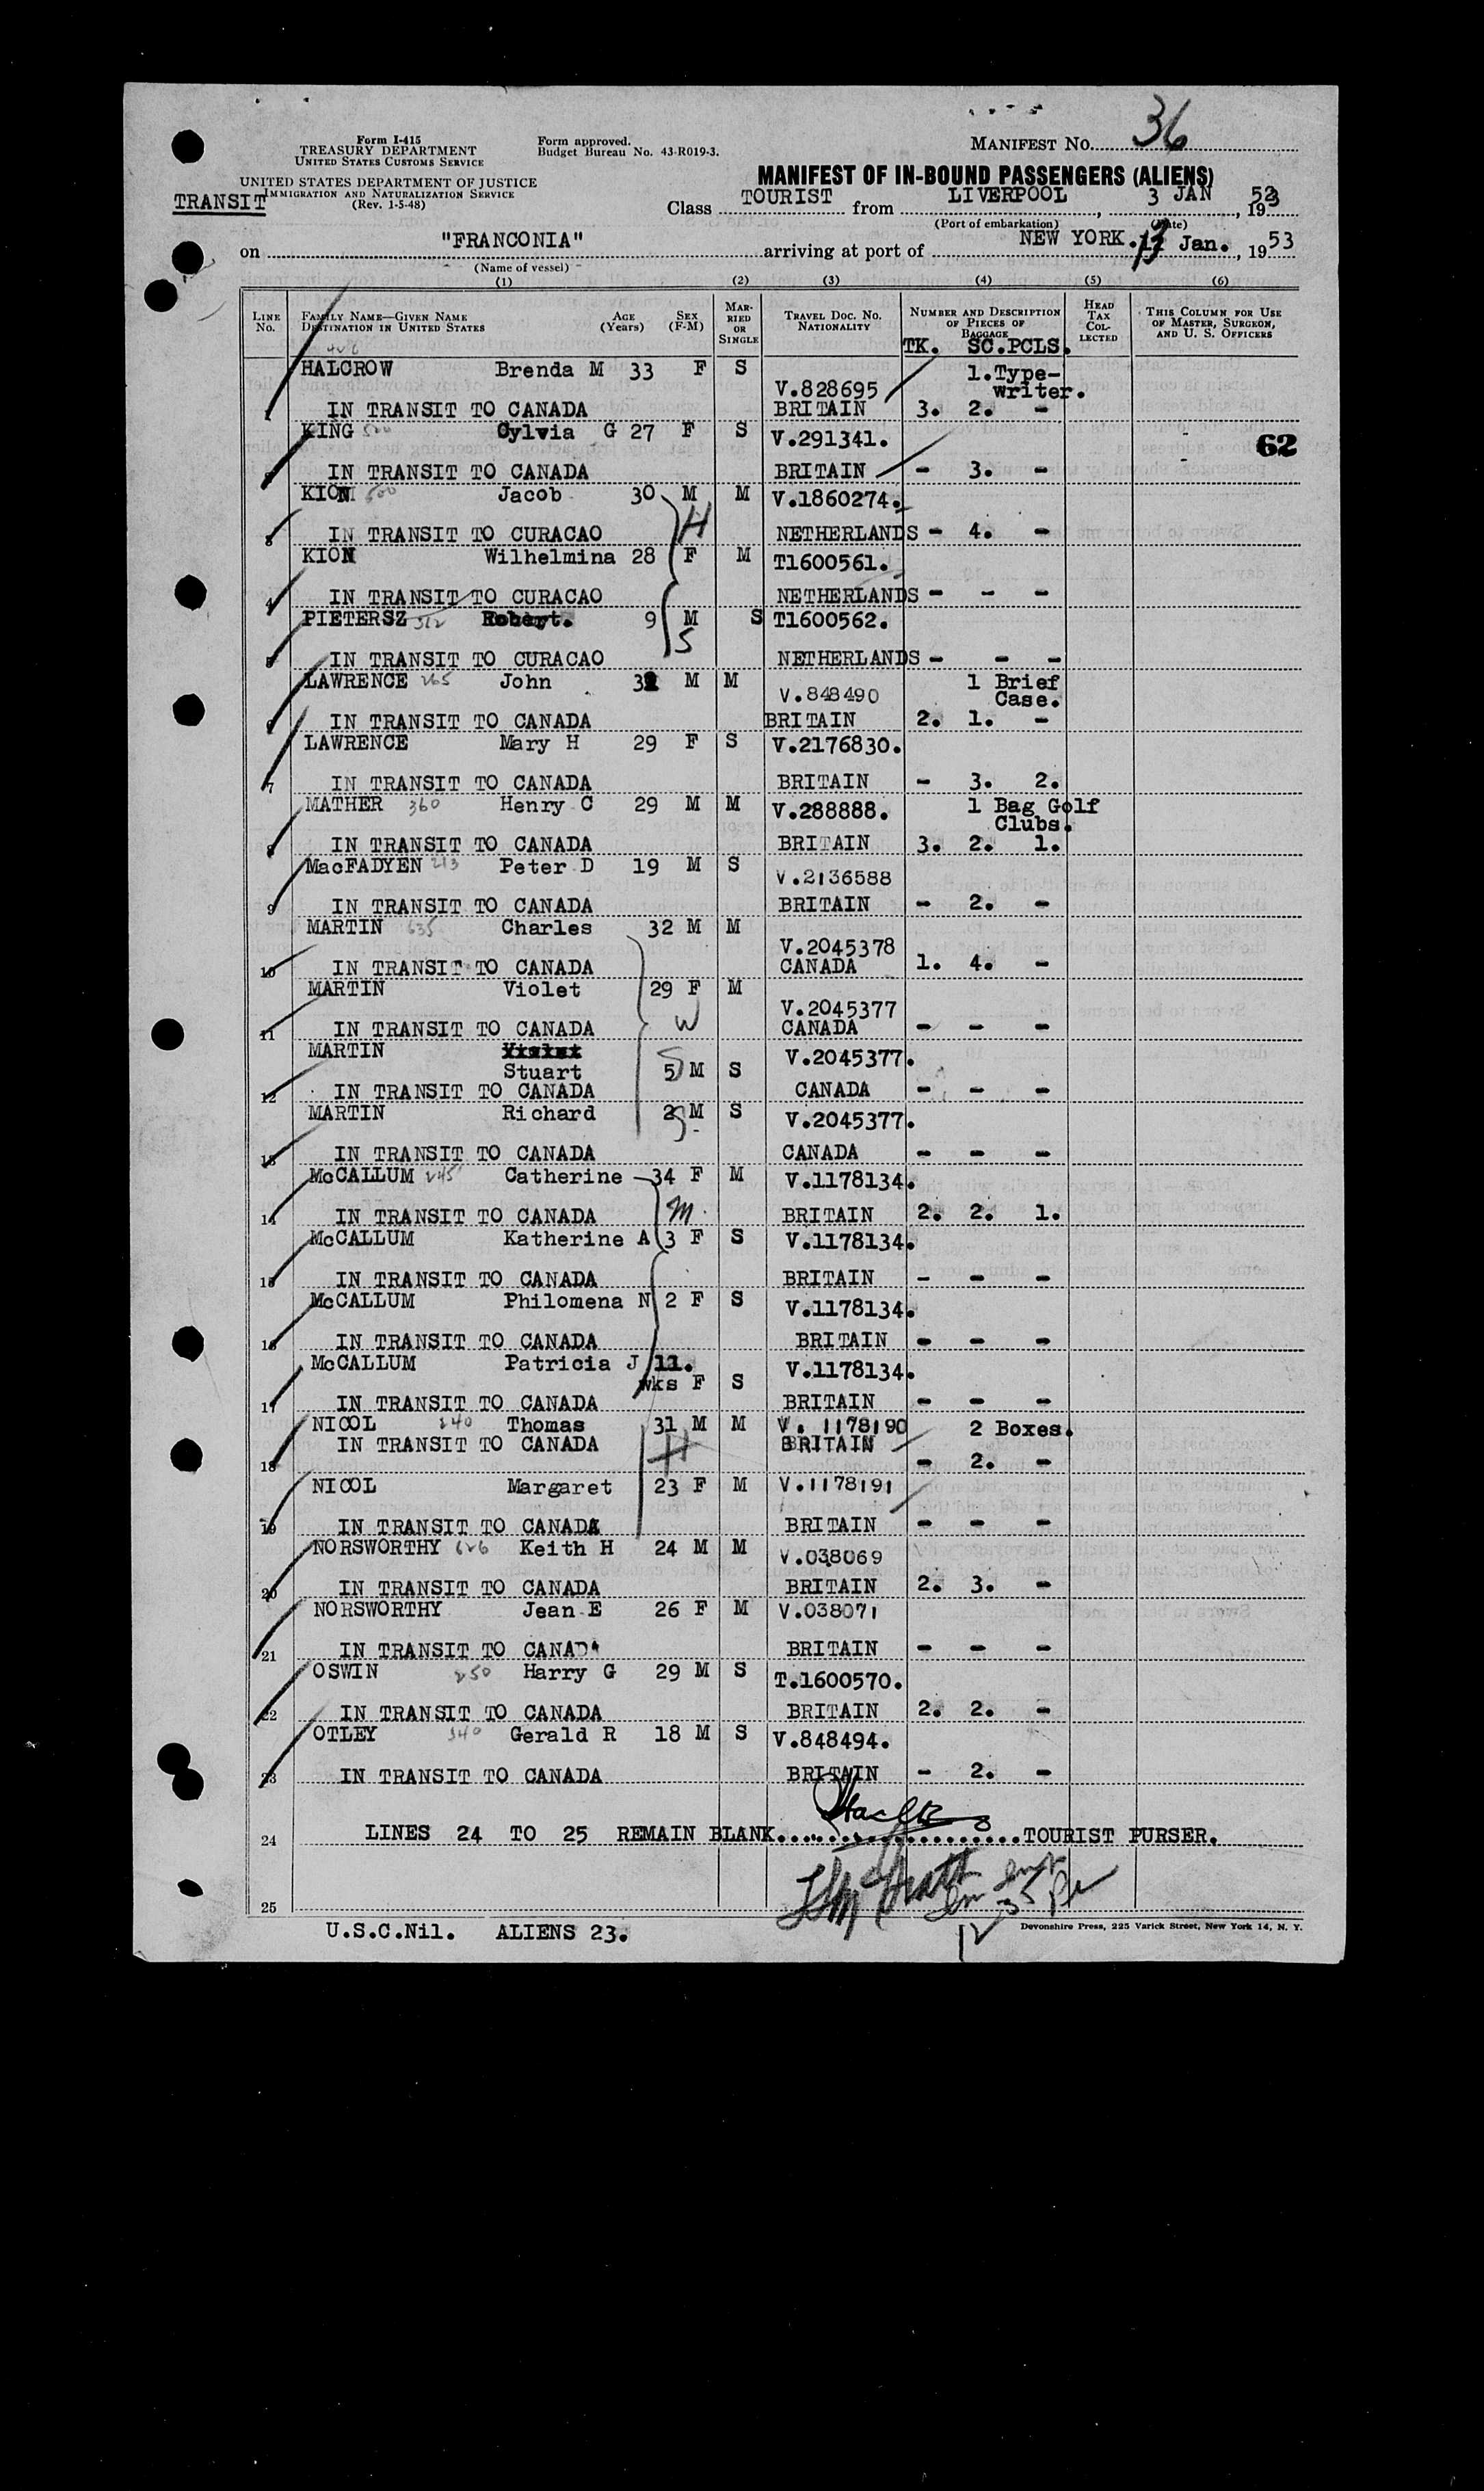 36
MANIFEST NO.
Form I-415
TREASURY DEPARTMENT
UNITED STATES CUSTOMS SERVICE
Form approved.
Budget Bureau No. 43-R019-3.
UNITED STATES DEPARTMENT OF JUSTICE
IMMIGRATION AND NATURALIZATION SERVICE
(Rev. 1-5-48)
TRANSIT
MANIFEST OF IN-BOUND PASSENGERS (ALIENS)
Class TOURIST from LIVERPOOL, 3 JAN, 1953
(Port of embarkation) (Date)
on "FRANCONIA" arriving at port of NEW YORK. 13 Jan., 1953
(Name of vessel)
(1) (2) (3) (4) (5) (6)
LINE No. FAMILY NAME—GIVEN NAME DESTINATION IN UNITED STATES AGE (Years) SEX (F-M) MARRIED OR SINGLE TRAVEL DOC. NO. NATIONALITY NUMBER AND DESCRIPTION OF PIECES OF BAGGAGE HEAD TAX COLLECTED THIS COLUMN FOR USE OF MASTER, SURGEON, AND U. S. OFFICERS
TK. SC. PCLS.
HALCROW Brenda M 33 F S V.828695 1.Type-writer.
1 IN TRANSIT TO CANADA BRITAIN 3. 2. -
KING 500 Cylvia G 27 F S V.291341. 62
2 IN TRANSIT TO CANADA BRITAIN - 3. -
KION 500 Jacob 30 M M V.1860274.
H
3 IN TRANSIT TO CURACAO NETHERLANDS - 4. -
KION Wilhelmina 28 F M T1600561.
4 IN TRANSIT TO CURACAO NETHERLANDS - - -
PIETERSZ 512 Robert. 9 M S T1600562.
S
5 IN TRANSIT TO CURACAO NETHERLANDS - - -
LAWRENCE 265 John M M V.848490 1 Brief Case.
6 IN TRANSIT TO CANADA BRITAIN 2. 1. -
LAWRENCE Mary H 29 F S V.2176830.
7 IN TRANSIT TO CANADA BRITAIN - 3. 2.
MATHER 360 Henry C 29 M M V.288888. 1 Bag Golf Clubs.
8 IN TRANSIT TO CANADA BRITAIN 3. 2. 1.
MacFADYEN 213 Peter D 19 M S V.2136588
9 IN TRANSIT TO CANADA BRITAIN - 2. -
MARTIN 635 Charles 32 M M V.2045378
10 IN TRANSIT TO CANADA CANADA 1. 4. -
MARTIN Violet 29 F M V.2045377
W
11 IN TRANSIT TO CANADA CANADA - - -
MARTIN Violet V.2045377.
S
Stuart 5 M S
12 IN TRANSIT TO CANADA CANADA - - -
MARTIN Richard 2 M S V.2045377.
S
13 IN TRANSIT TO CANADA CANADA - - -
McCALLUM 245 Catherine 34 F M V.1178134.
M.
14 IN TRANSIT TO CANADA BRITAIN 2. 2. 1.
McCALLUM Katherine A 3 F S V.1178134.
15 IN TRANSIT TO CANADA BRITAIN - - -
McCALLUM Philomena N 2 F S V.1178134.
16 IN TRANSIT TO CANADA BRITAIN - - -
McCALLUM Patricia J 11. wks F S V.1178134.
17 IN TRANSIT TO CANADA BRITAIN - - -
NICOL 240 Thomas 31 M M V. 1178190 2 Boxes.
H
18 IN TRANSIT TO CANADA BRITAIN - 2. -
NICOL Margaret 23 F M V.1178191
19 IN TRANSIT TO CANADA BRITAIN - - -
NORSWORTHY 626 Keith H 24 M M V.038069
20 IN TRANSIT TO CANADA BRITAIN 2. 3. -
NORSWORTHY Jean E 26 F M V.038071
21 IN TRANSIT TO CANADA BRITAIN - - -
OSWIN 250 Harry G 29 M S T.1600570.
22 IN TRANSIT TO CANADA BRITAIN 2. 2. -
OTLEY 340 Gerald R 18 M S V.848494.
23 IN TRANSIT TO CANADA BRITAIN - 2. -
24 LINES 24 TO 25 REMAIN BLANK. TOURIST PURSER.
25
U.S.C.Nil. ALIENS 23.
Devonshire Press, 225 Varick Street, New York 14, N. Y.